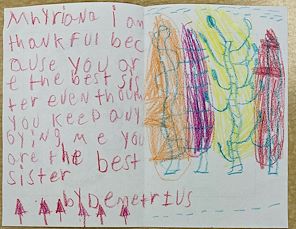 Mhyriana i am
thankful bec
ause you ar
e the best sis
ter even though
you keep any
oying me you
are the best
sister
by Demetrius